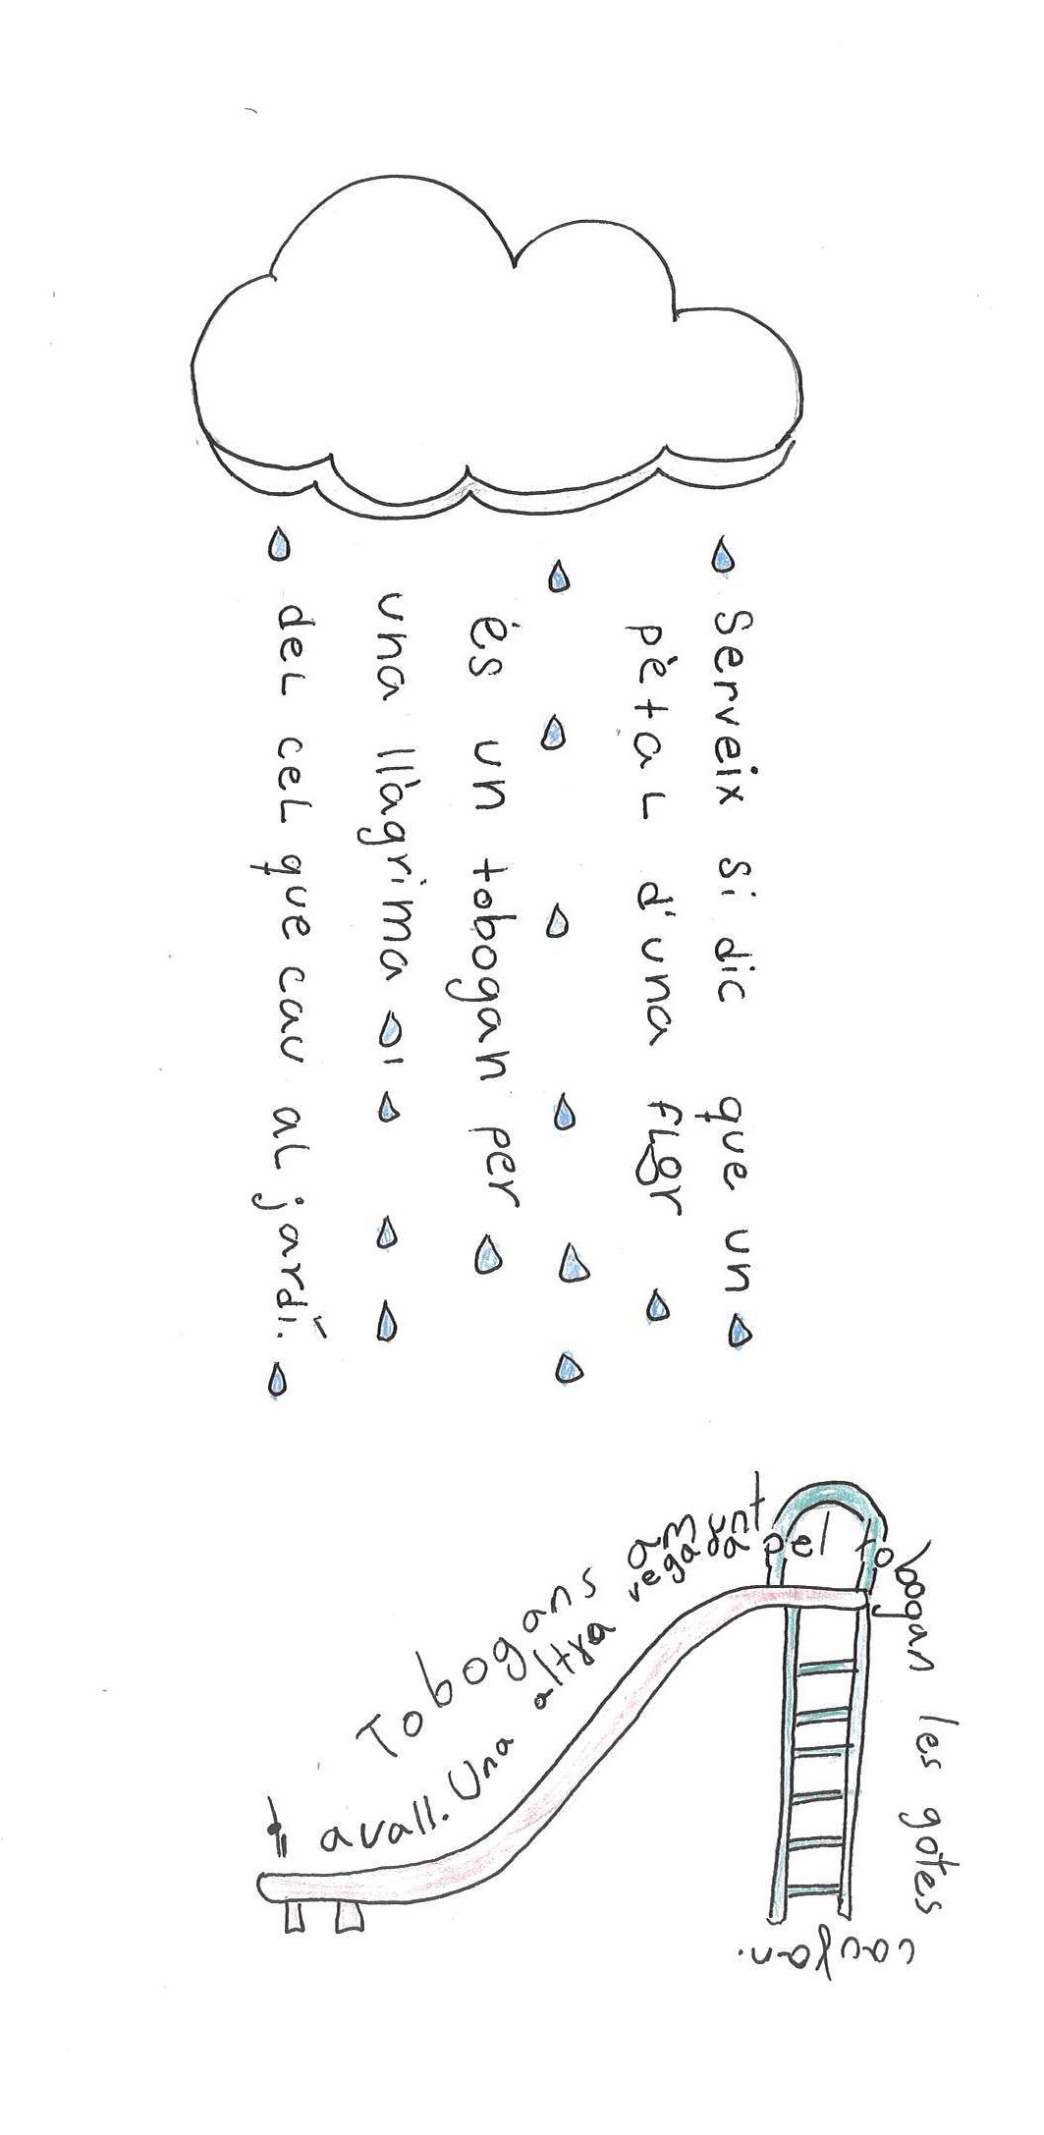 Serveix si dic que un
pètaL d'una FLor
és un tobogan per
una llàgrima
deL ceL que cau aL jardí.
Tobogans amunt
avall. Una altra vegada pel tobogan les gotes
cauran.